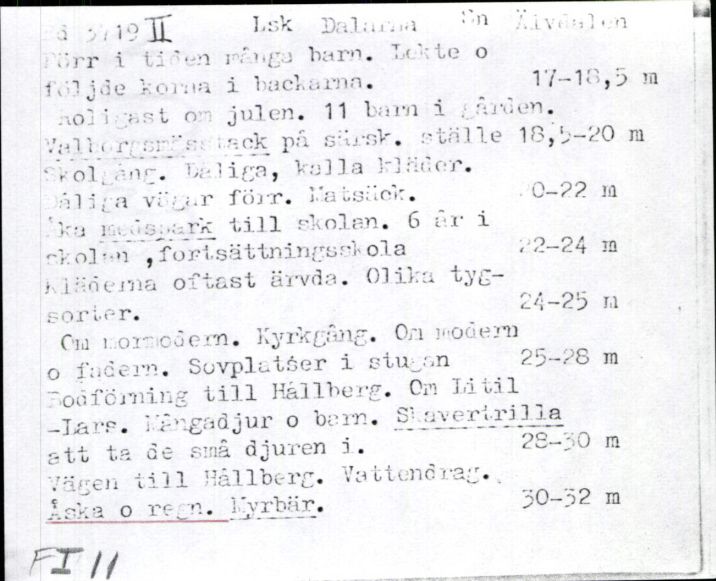 Lsk Dalarna Sn Älvdalen
Förr i tiden många barn. Lekte o
följde korna i backarna. 17-18,5 m
Roligast om julen. 11 barn i gården.
Valborgsmässtack på särsk. ställe 18,5-20 m
Skolgång. Dåliga, kalla kläder.
Dåliga vägar förr. Matsäck. 20-22 m
Åka medspark till skolan. 6 år i
skolan ,fortsättningsskola 22-24 m
Kläderna oftast ärvda. Olika tyg-
sorter. 24-25 m
Om mormodern. Kyrkgång. Om modern
o fadern. Sovplatser i stugan 25-28 m
Bodförning till Hållberg. Om Litil
-Lars. Mångadjur o barn. Skavertrilla
att ta de små djuren i. 28-30 m
Vägen till Hållberg. Vattendrag.
Åska o regn. Myrbär. 30-32 m
FI 11